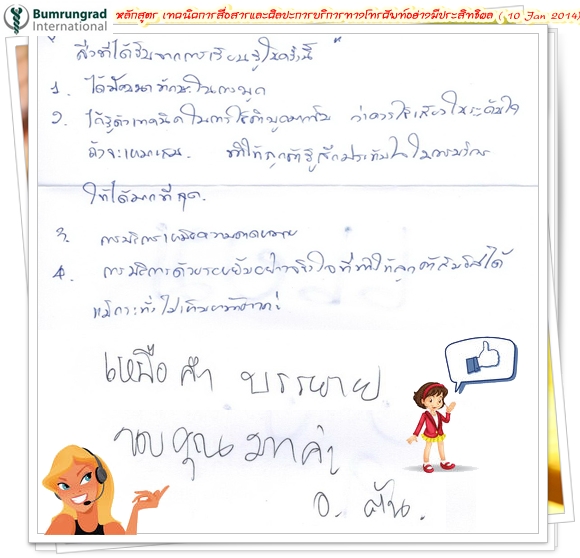 Bumrungrad
International
หลักสูตร เทคนิคการสื่อสารและศิลปะการบริการทางโทรศัพท์อย่างมีประสิทธิผล ( 10 Jan 2014)
" สิ่งที่ได้รับจากการเรียนรู้ในครั้งนี้ "
1. ได้พัฒนาทักษะในการพูด
2. ได้รู้ถึงเทคนิคในการใช้คำพูดมากขึ้น ว่าควรใช้เสียงในระดับใด
ถึงจะเหมาะสม. ทำให้ลูกค้ารู้สึกประทับใจในการบริการ
ให้ได้มากที่สุด.
3. การบริการเหนือความคาดหมาย
4. การบริการด้วยรอยยิ้มอย่างจริงใจที่ทำให้ลูกค้าสัมผัสได้
แม้กระทั่งไม่เห็นหน้า
เหนือคำ บรรยาย
ขอบคุณมากค่ะ
อ.